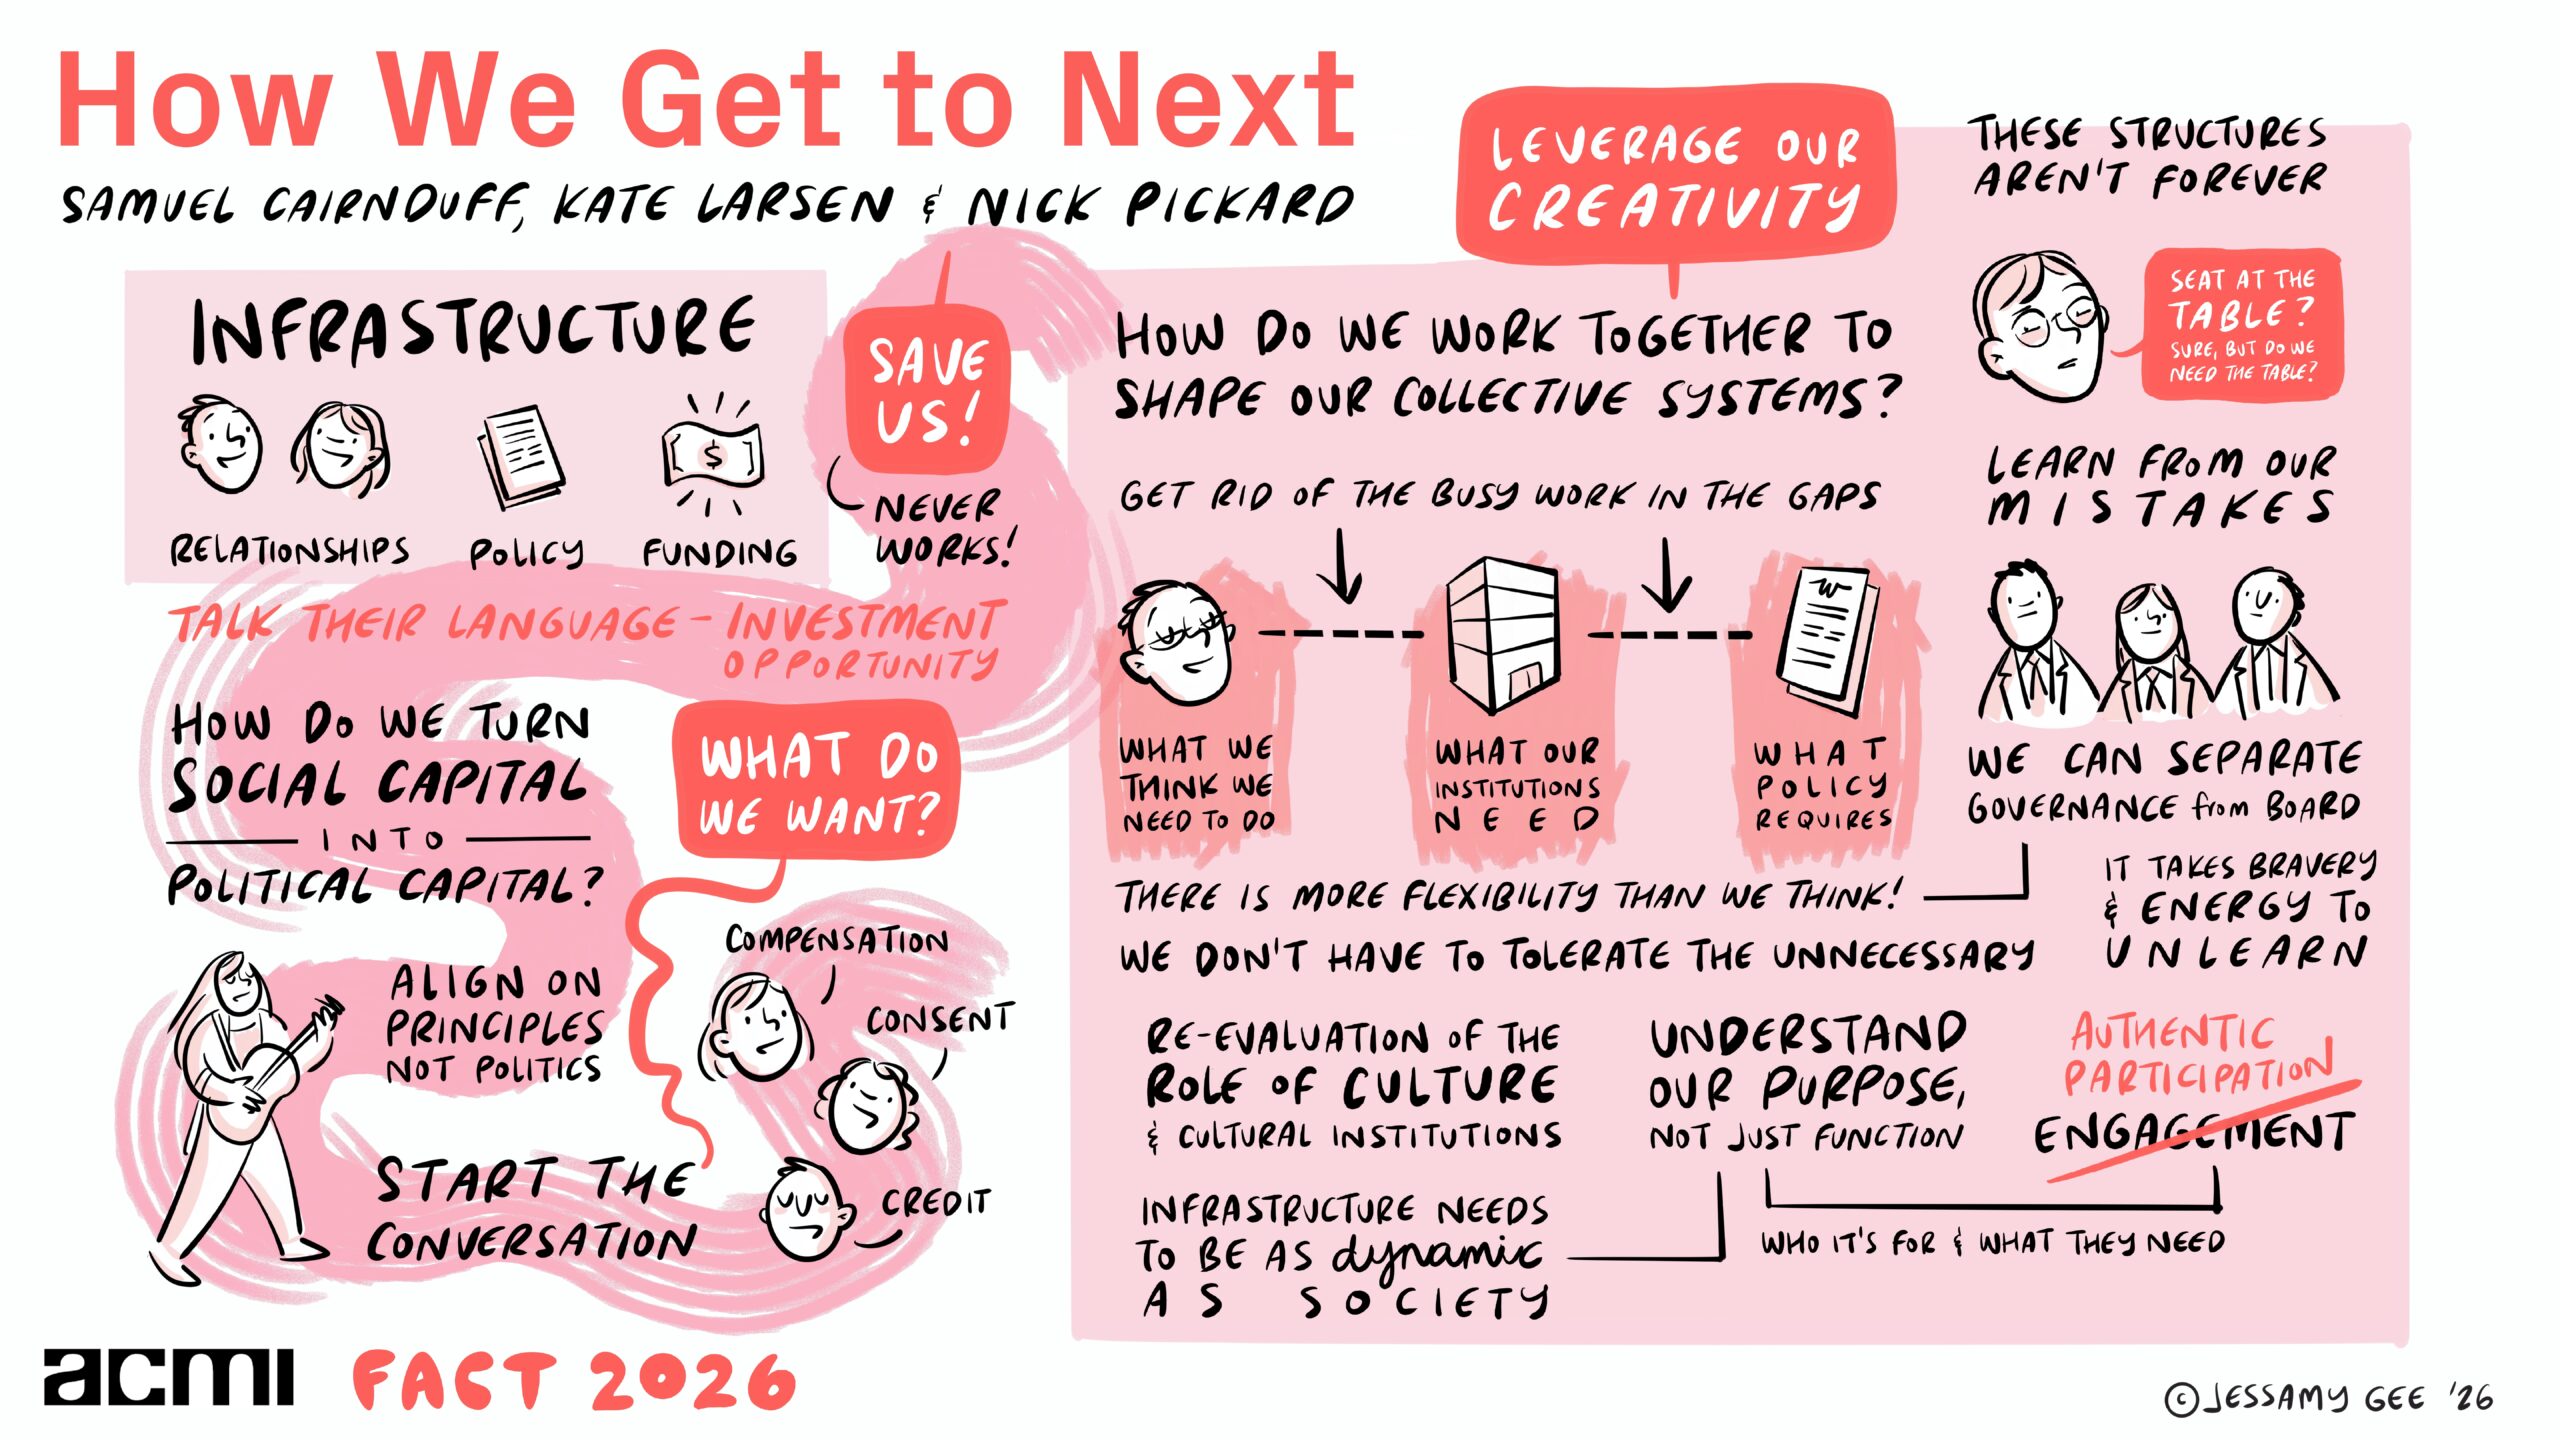 How We Get to Next
SAMUEL CAIRNDUFF, KATE LARSEN & NICK PICKARD
INFRASTRUCTURE
RELATIONSHIPS
POLICY
FUNDING
SAVE
US!
NEVER
WORKS!
TALK THEIR LANGUAGE - INVESTMENT
OPPORTUNITY
HOW DO WE TURN
SOCIAL CAPITAL
INTO
POLITICAL CAPITAL?
WHAT DO
WE WANT?
ALIGN ON
PRINCIPLES
NOT POLITICS
START THE
CONVERSATION
COMPENSATION
CONSENT
CREDIT
LEVERAGE OUR
CREATIVITY
HOW DO WE WORK TOGETHER TO
SHAPE OUR COLLECTIVE SYSTEMS?
GET RID OF THE BUSY WORK IN THE GAPS
WHAT WE
THINK WE
NEED TO DO
WHAT OUR
INSTITUTIONS
NEED
W
WHAT
POLICY
REQUIRES
THERE IS MORE FLEXIBILITY THAN WE THINK!
WE DON'T HAVE TO TOLERATE THE UNNECESSARY
RE-EVALUATION OF THE
ROLE OF CULTURE
& CULTURAL INSTITUTIONS
INFRASTRUCTURE NEEDS
TO BE AS dynamic
AS SOCIETY
UNDERSTAND
OUR PURPOSE,
NOT JUST FUNCTION
THESE STRUCTURES
AREN'T FOREVER
SEAT AT THE
TABLE?
SURE, BUT DO WE
NEED THE TABLE?
LEARN FROM OUR
MISTAKES
WE CAN SEPARATE
GOVERNANCE from BOARD
IT TAKES BRAVERY
& ENERGY TO
UNLEARN
AUTHENTIC
PARTICIPATION
ENGAGEMENT
WHO IT'S FOR & WHAT THEY NEED
acmi FACT 2026
©JESSAMY GEE '26